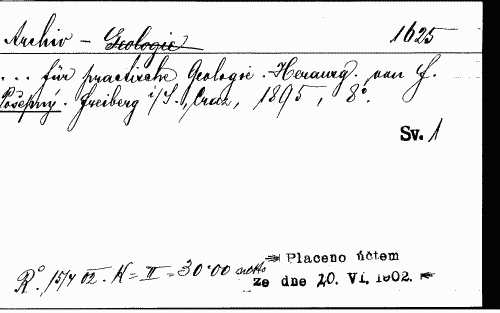 Archiv – Geologie 1625
... für practische Geologie. Herausg. von F.
Pošepný. Freiberg i/S., Craz, 1895, 8°.
Sv. 1
R° 15/4 02. K = II = 30·00 netto
Placeno účtem
ze dne 20. VI. 1902.